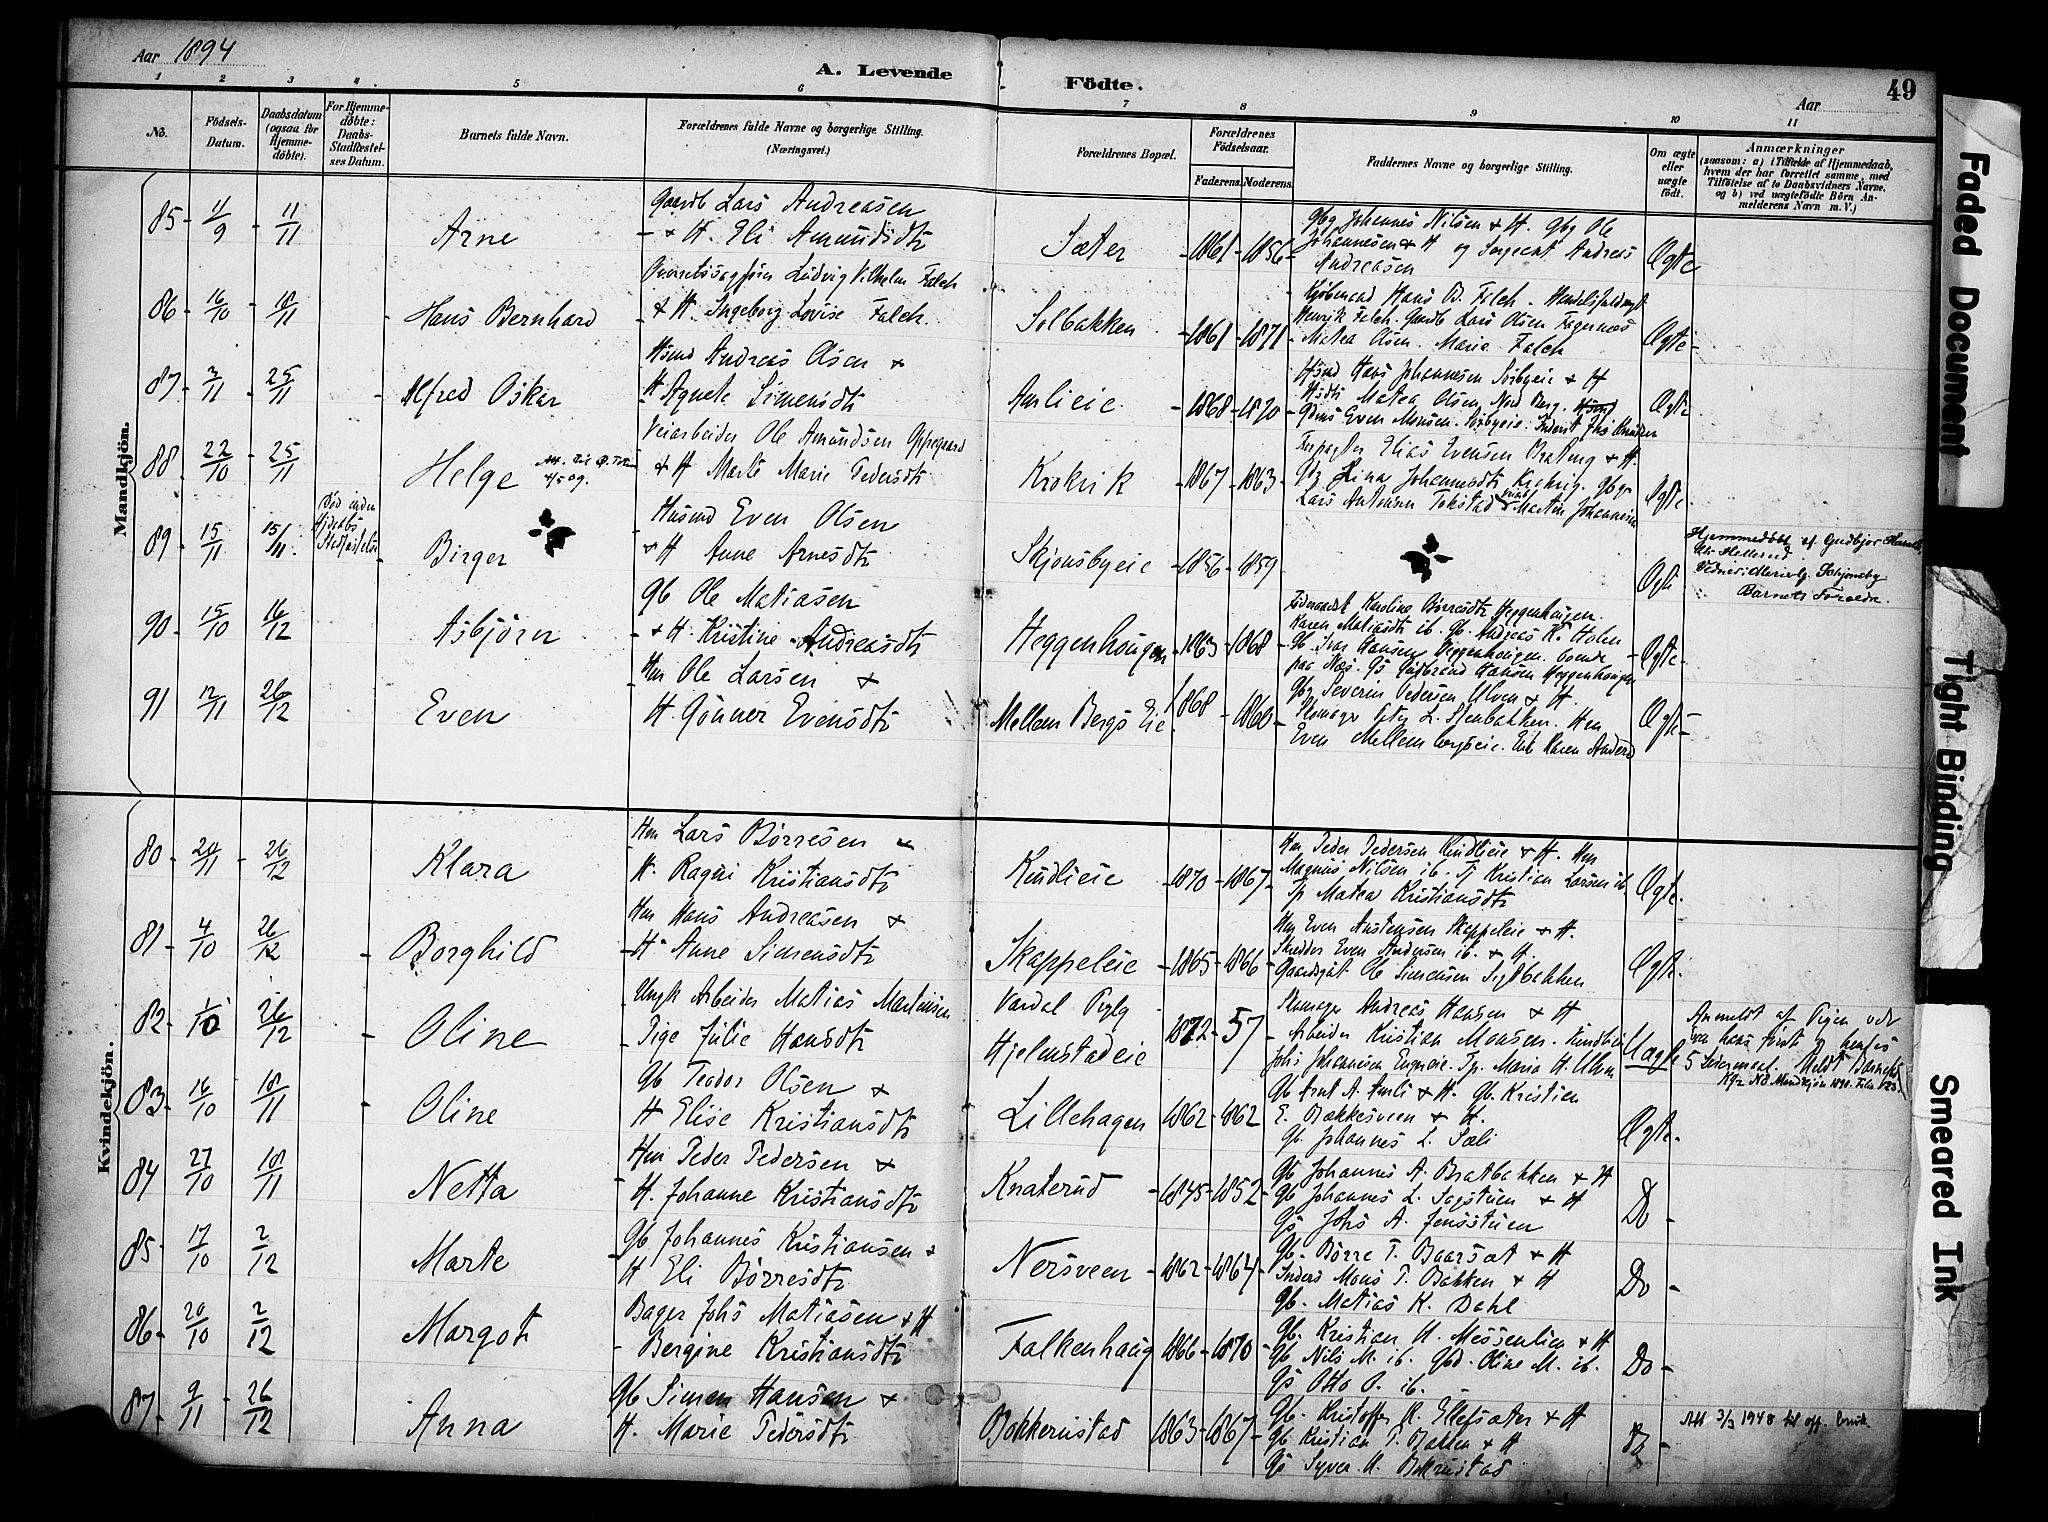 Aar 1894
A. Levende Födte.
Aar
49
1 2 3 4 5 6 7 8 9 10 11
No.
Födsels-Datum.
Daabsdatum (ogsaa for Hjemme-döbte).
For Hjemme-döbte: Daabs-Stadfæstel-ses Datum.
Barnets fulde Navn.
Forældrenes fulde Navne og borgerlige Stilling. (Næringsvei.)
Forældrenes Bopæl.
Forældrenes Födselsaar.
Faderens. Moderens.
Faddernes Navne og borgerlige Stilling.
Om ægte eller uægte födt.
Anmærkninger (saasom: a) i Tilfælde af Hjemmedaab, hvem der har forrettet samme, med Tilföielse af to Daabsvidners Navne, og b) ved uægtefödte Börn An-melderens Navn m. V.)
Mandkjön.
85 - 11/9 - 11/11 Arne
Gaardb Lars Andreasen
+ H. Eli Amundsdtr
Sæter - 1861 - 1856 -
Gbg Johannes Nilsen + H. Gbg Ole
Johannesen + H og Sergeant Andreas
Andreasen
Ægte
86 - 16/10 - 18/11 Hans Bernhard
Ludvig Vilhelm Falch
+ H. Ingeborg Lovise Falch.
Solbakken - 1861 - 1871 -
Kjöbmand Hans B. Falch.
Henrik Falch. Gaardb Lars Olsen Fagernæs
Matea Olsen. Marie Falch
Ægte -
87 - 3/11 25/11 Alfred Oskar
Hsmd Andreas Olsen +
H Agnete Simensdtr
Amlieie - 1868 - 1870 -
Hsmd Hans Johannesen Sörbyeie + H
Matea Olsen Nord Berg.
Even Monsen. Sörbyeie.
Ægte
88 - 22/10 - 25/11 Helge
Veiarbeider Ole Amundsen Oppegaard
+ H Marte Marie Pedersdtr
Krokvik - 1867 - 1863 -
Forpagter Elias Evensen Brateng + H.
Lina Johannesdtr
Lars Antonsen Tokstad Martin Johannesen
Ægte.
89 - 15/11 15/11 Birger
Husmd Even Olsen
+ H Anne Arnesdtr
Skjönsbyeie - 1856 - 1859
Ægte
Hjemmedöbt af Gudbjor
Hellerud.
Vidner: Schjönsby
Barnets Forældre.
90 - 15/10 16/12 Asbjörn
Gb Ole Matiasen
- + H. Kristine Andreasdtr
Heggenhougen 1863 - 1868 -
Karoline Börresdtr Heggenhougen.
Karen Matiasdtr ib. Gb. Andreas K. Holen
Gb. Ivar Hansen Heggenhougen.
paa Næs. Gs Gudbrand Hansen Heggenhougen
Ægte -
91 12/11 26/12 Even
Hm Ole Larsen +
H. Gönner Evensdtr
Mellem Bergs Eie 1868 - 1860 -
Gbg Severin Pedersen Ulven + H.
Skomager L. Stenbakken. Hm
Even Mellembergseie. Karen Andersd
Ægte -
Kvindekjön.
80 - 20/11 - 26/12 Klara
Hm Lars Börresen +
H. Ragni Kristiansdtr
Kindlieie - 1870 - 1867 -
Hm Peder Pedersen Kindlieie + H. Hm
Magnus Nilsen ib. Tj Kristian Larsen ib
Tp Matea Kristiansdtr
Ægte.
81 - 4/10 26/12 - Borghild
Hm Hans Andreasen +
H Anne Simensdtr
Skappeleie - 1865 - 1866 -
Hm Even Austensen Skappeleie + H.
Skredder Even Andersen ib. + H.
Ole Simensen
Ægte.
82 - 1/10 26/12 - Oline
Ungk Arbeider Matias Martinsen
Pige Julie Hansdtr
Vardal Prgld
Hjelmstadeie 1872 - 57
Skomager Andreas Hansen + H
Arbeider Kristian Monsen. Kindlieie
Johs Johannesen Engeeie. Tp. Maria H. Ulven
Uægte
Anmeldt af Pigen
hans förste og hendes
5 Leiermaal.
83 - 16/10 18/11 - Oline
Gb Teodor Olsen +
H Elise Kristiansdtr
Lillehagen 1862 - 1862
Gb Arnt A. Amli + H. Gb. Kristian
E. Bækkesveen + H.
Gb. Johannes L. Sæli
Ægte.
84 27/10 18/11 Netta
Hm Peder Pedersen +
H. Johanne Kristiansdtr
Knaterud - 1845 - 1852 -
Gb Johannes A. Bratbakken + H
Gb Johannes L. Sagstuen + H
Gs Johs A. Jensstuen
Do -
85 - 17/10 2/12 Marte
Gb Johannes Kristiansen +
H Eli Börresdtr
Nersveen - 1862 - 1864 -
Gb. Börre T. Baarsæt + H
Inders Mons P. Bakken + H
Gb. Matias K. Dahl
Do -
86 - 20/10 2/12 Margot
Bager Johs Matiasen + H
- Bergine Kristiansdtr
Falkenhaug 1866 - 1870 -
Gb. Kristian H. Messenlien + H
Gb Nils M. ib. Gbd. Oline M. ib.
Gs Otto O. ib.
Do -
87 - 9/11 - 26/12 Anna
Gb Simen Hansen +
H. Marie Pedersdtr
Bakkerustad 1863 - 1867 -
Gb. Kristoffer K. Ellefsæter + H
Gb Kristian P. Bakken + H
Gs Syver H. Bakrustad
Do -
Att 3/3 1948 til off. bruk
Faded Document
Tight Binding
Smeared Ink